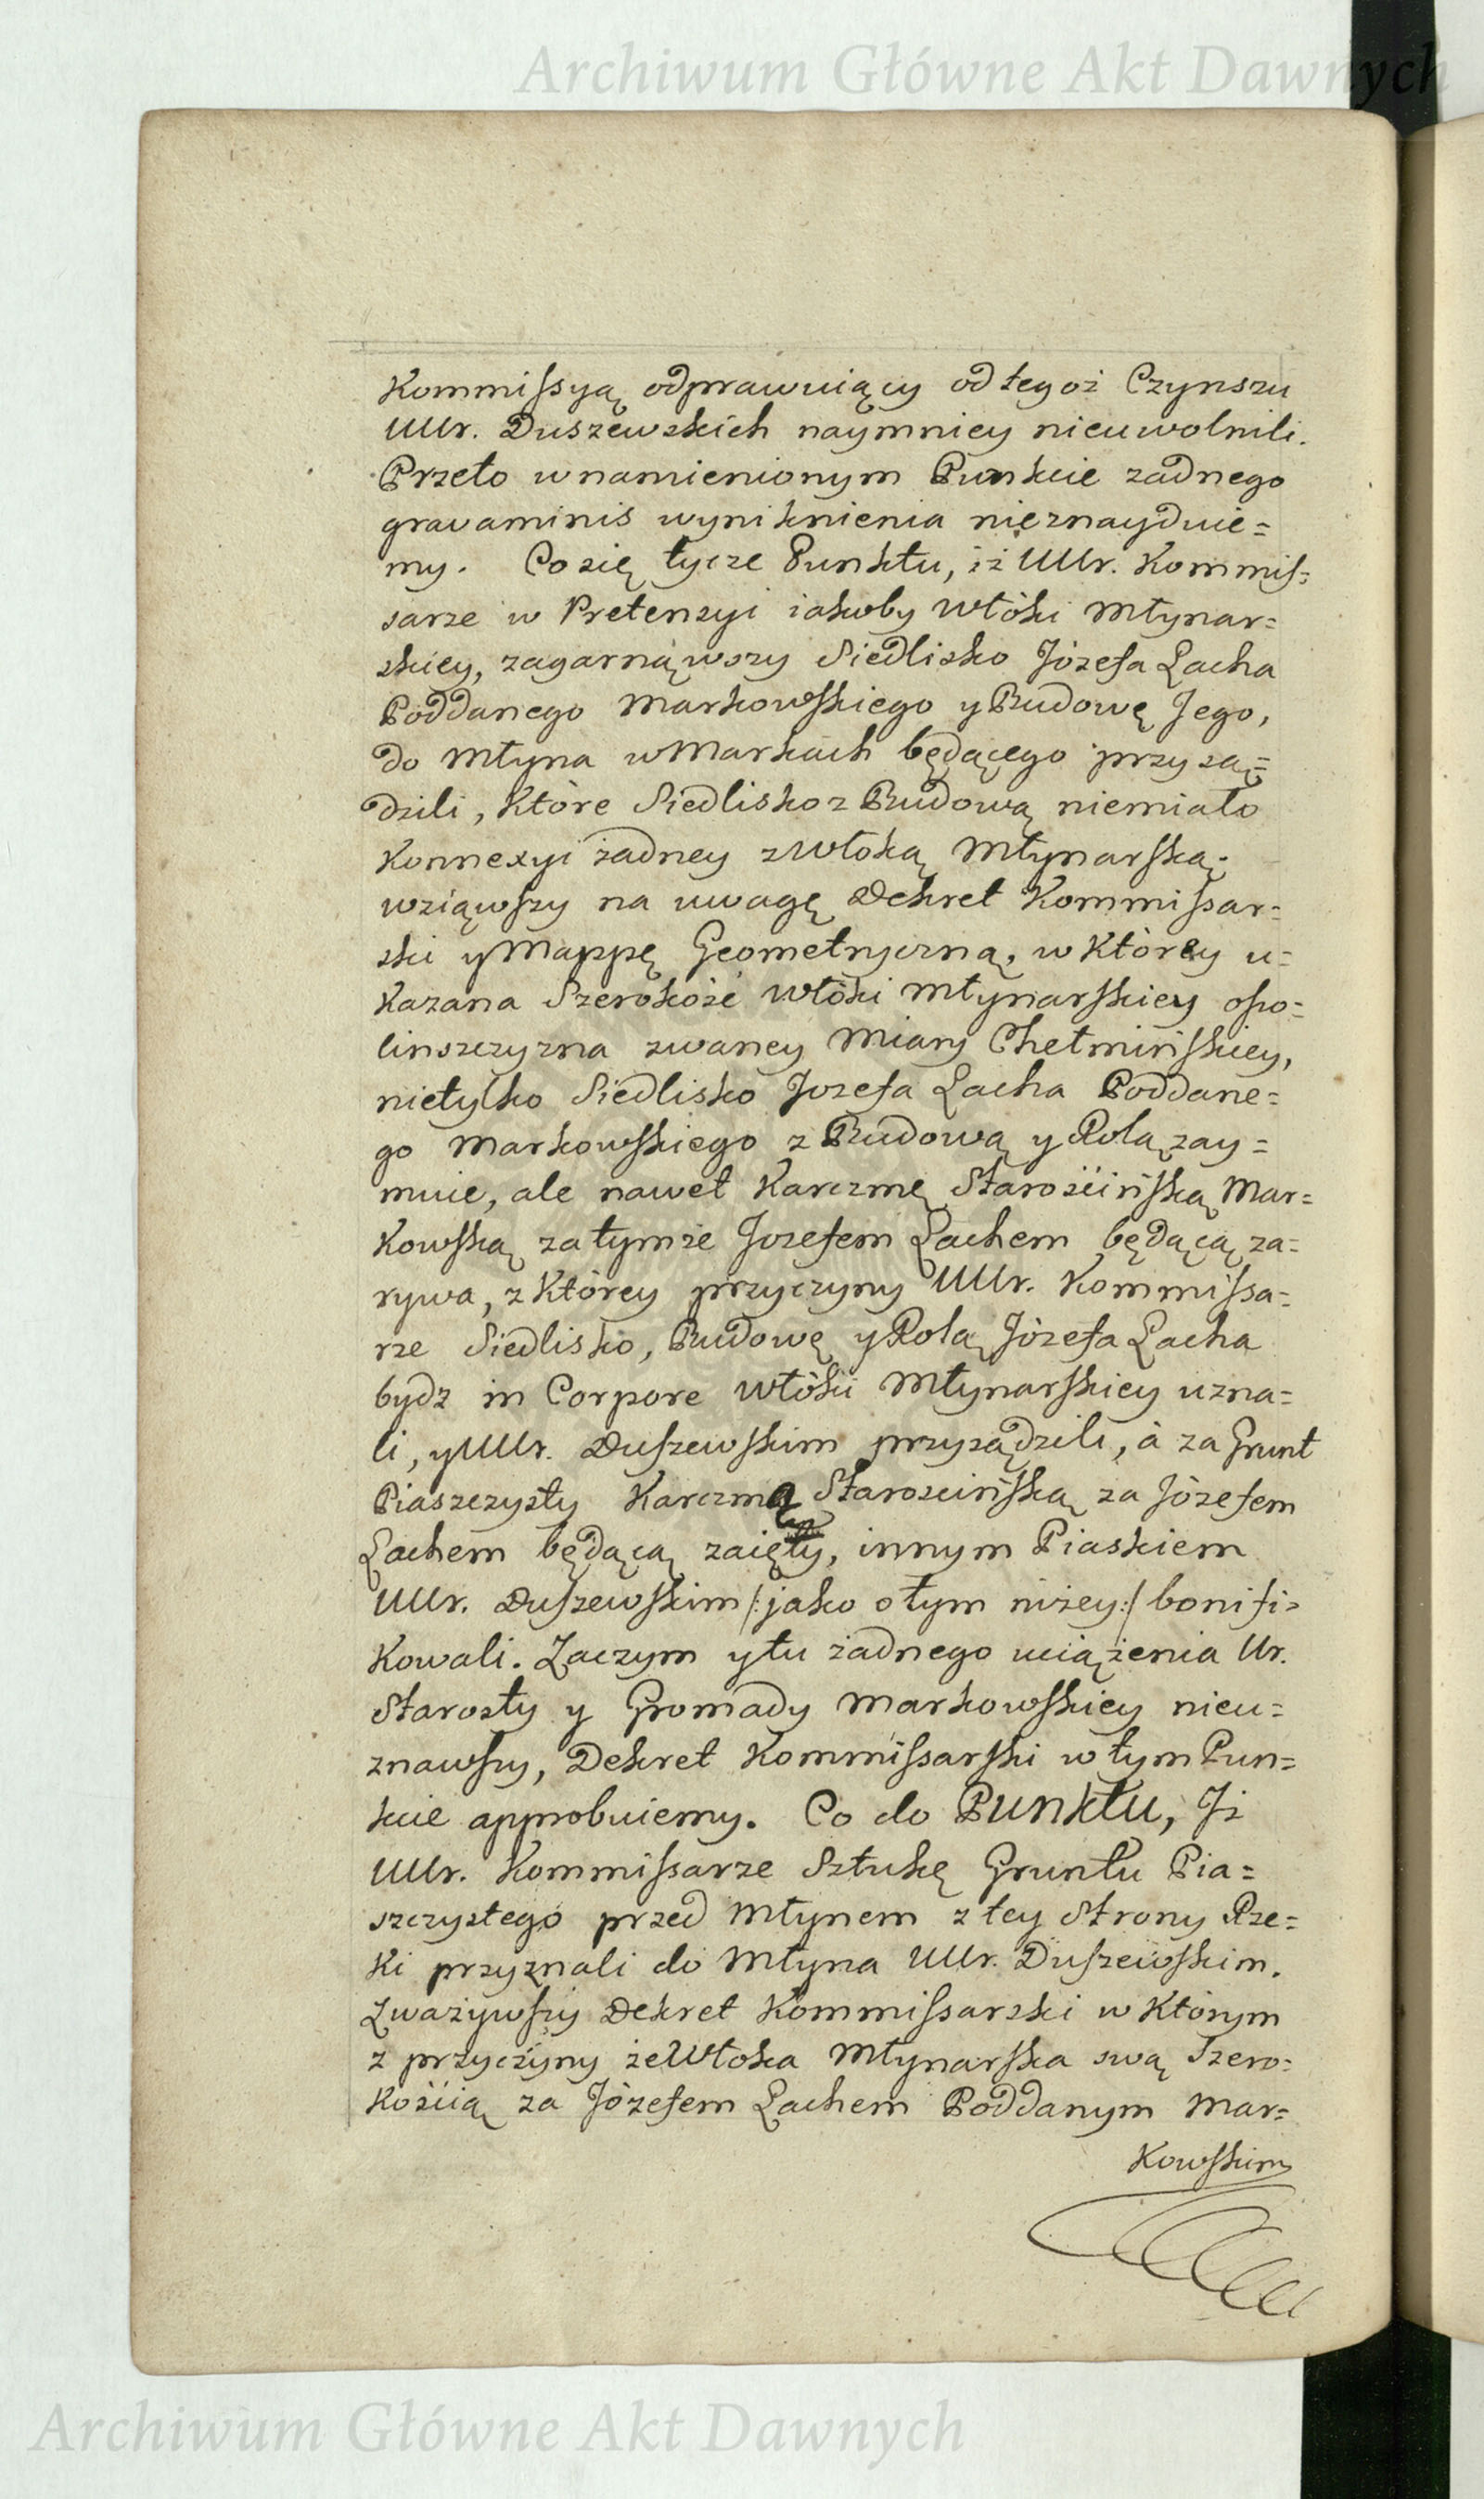 Archiwum Główne Akt Dawnych
Kommissyą odprawuiący od tegoż Czynszu
UUr. Duszewskich naymniey nieuwolnili.
Przeto wnamienionym Punkcie zadnego
gravaminis wyniknienia nieznayduie=
my. Co się tycze Punktu, iż UUr. Kommis=
sarze w Pretensyi iakoby Włóki Młynar=
skiey, zagarnąwszy Siedlisko Józefa Lacha
Poddanego Markowskiego y Budowę Jego,
do Młyna w Markach będącego przysą=
dzili, które Siedlisko z Budową niemiało
Konnexyi żadney z Włoką Młynarską.
wziąwszy na uwagę Dekret Kommissar=
ski y Mappę Geometryczną, w którey u=
kazana Szerokość Włóki Młynarskiey opo=
linszczyzna zwaney Miary Chełmińskiey,
nietylko Siedlisko Jozefa Lacha Poddane=
go Markowskiego z Budową y Rolą zay=
muie, ale nawet Karczmę Starościńską Mar=
kowską za tymże Jozefem Lachem będącą za=
rywa, z którey przyczyny UUr. Kommissa=
rze Siedlisko, Budowę y Rolą Józefa Lacha
bydz in Corpore Włóki Młynarskiey uzna=
li, y UUr. Duszewskim przysądzili, à za Grunt
Piaszczysty Karczmą Starościńską za Józefem
Lachem będącą zaięty, innym Piaskiem
UUr. Duszewskim /:jako o tym niżey:/ bonifi=
kowali. Zaczym y tu żadnego uciążenia Ur.
Starosty y Gromady Markowskiey nieu=
znawszy, Dekret Kommissarski w tym Pun=
kcie approbuiemy. Co do Punktu, Jż
UUr. Kommissarze Sztukę Gruntu Pia=
szczystego przed Młynem z tey Strony Rze=
ki przyznali do Młyna UUr. Duszewskim.
Zważywszy Dekret Kommissarski w którym
z przyczyny że Włoka Młynarska swą Szero=
kością za Józefem Lachem Poddanym Mar=
kowskim
Archiwum Główne Akt Dawnych